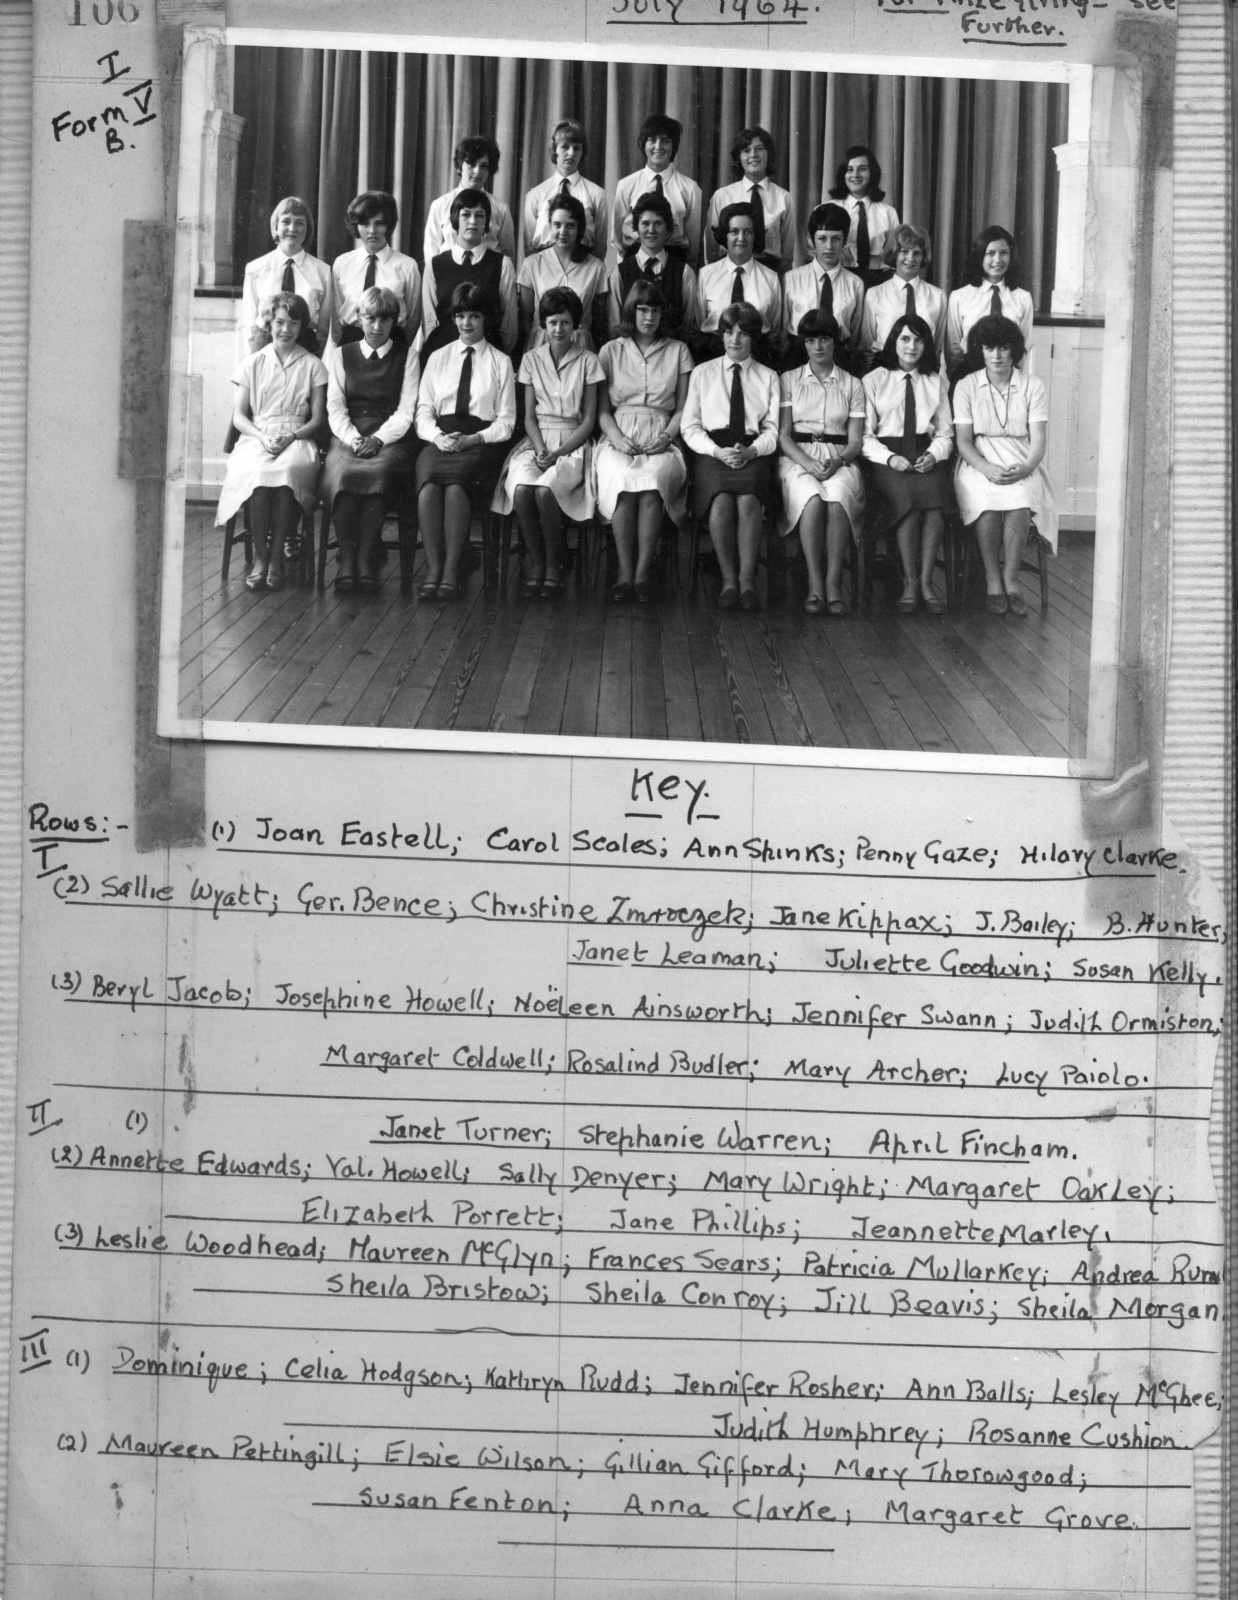 106
July 1964. For Prize giving - see
Further.
I
Form V
B.
Key.
Rows:-
I (1) Joan Eastell; Carol Scoles; Ann Shinks; Penny Gaze; Hilary Clarke.
(2) Sallie Wyatt; Ger. Bence; Christine Zmroczek; Jane Kippax; J. Bailey; B. Hunter;
Janet Leaman; Juliette Goodwin; Susan Kelly.
(3) Beryl Jacob; Josephine Howell; Noëleen Ainsworth; Jennifer Swann; Judith Ormiston;
Margaret Coldwell; Rosalind Budler; Mary Archer; Lucy Paiolo.
II (1) Janet Turner; Stephanie Warren; April Fincham.
(2) Annette Edwards; Val. Howell; Sally Denyer; Mary Wright; Margaret Oakley;
Elizabeth Porrett; Jane Phillips; Jeannette Marley.
(3) Leslie Woodhead; Maureen McGlyn; Frances Sears; Patricia Mullarkey; Andrea
Sheila Bristow; Sheila Conroy; Jill Beavis; Sheila Morgan
III (1) Dominique; Celia Hodgson; Kathryn Rudd; Jennifer Rosher; Ann Balls; Lesley McGhee;
Judith Humphrey; Rosanne Cushion.
(2) Maureen Pettingill; Elsie Wilson; Gillian Gifford; Mary Thorowgood;
Susan Fenton; Anna Clarke; Margaret Grove.